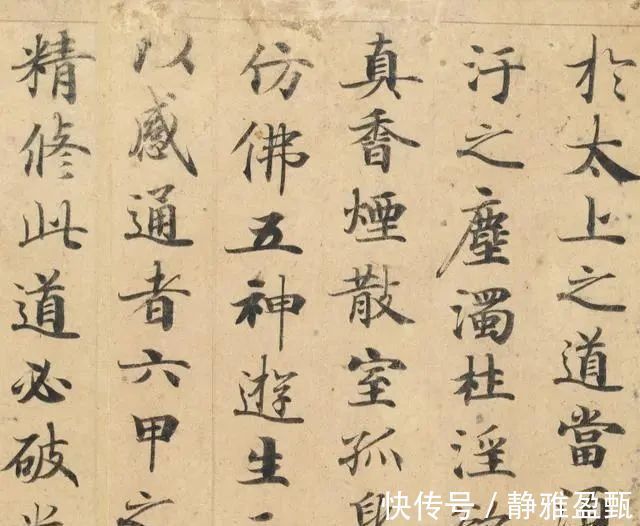 於太上之道當
汙之塵濁柱淫
真香煙散室孤
仿佛五神遊生
以感通者六甲之
精修此道必破
快传号/静雅盈甄